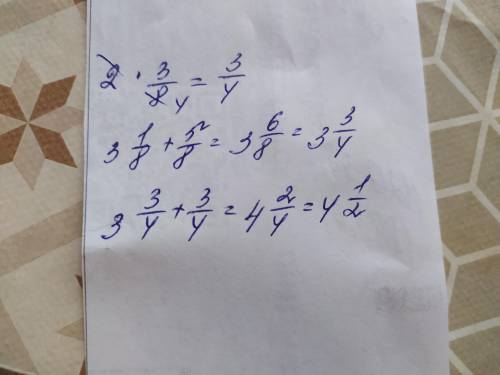 2 · 3/8 4 = 3/4
3 1/8 + 5/8 = 3 6/8 = 3 3/4
3 3/4 + 3/4 = 4 2/4 = 4 1/2